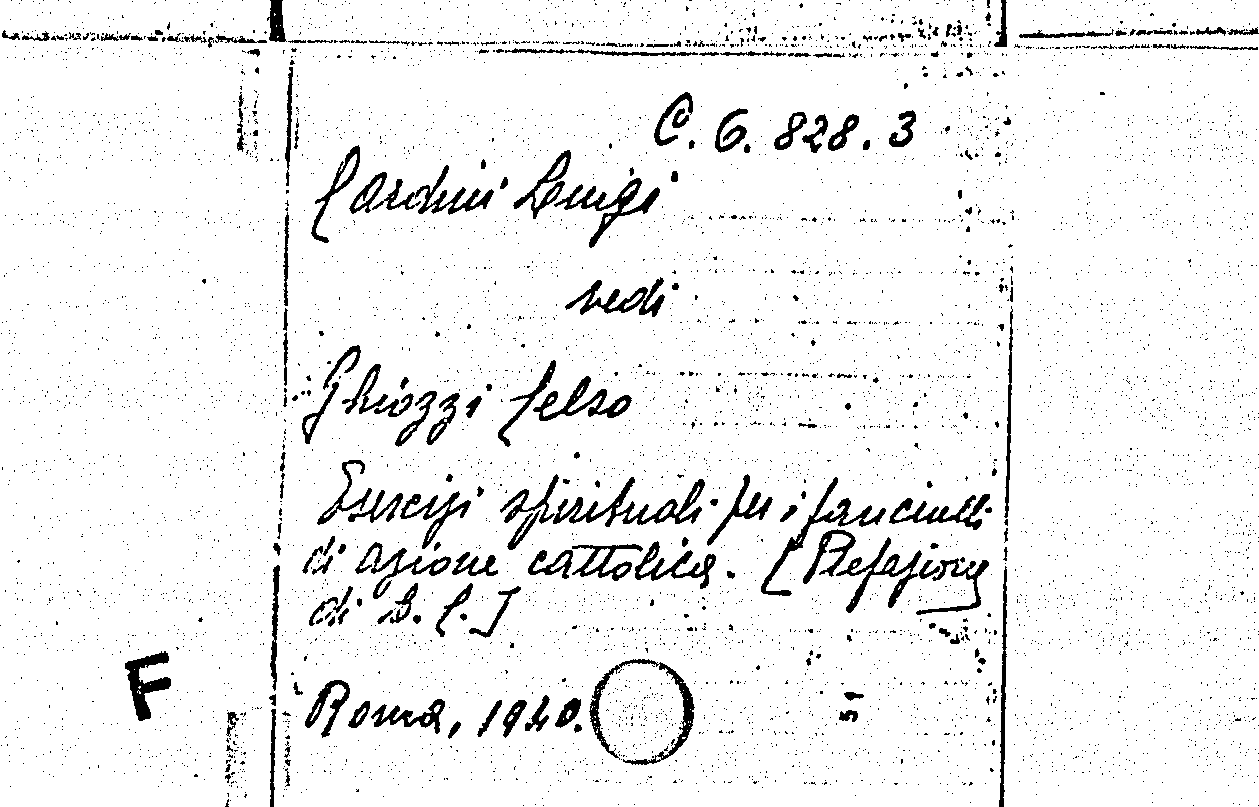 C. G. 828. 3
Cardini Luigi
vedi
Ghiozzi Celso
Esercizi spirituali per i fanciulli
di azione cattolica. [Prefazione
di L. C.]
F
Roma, 1940.
51